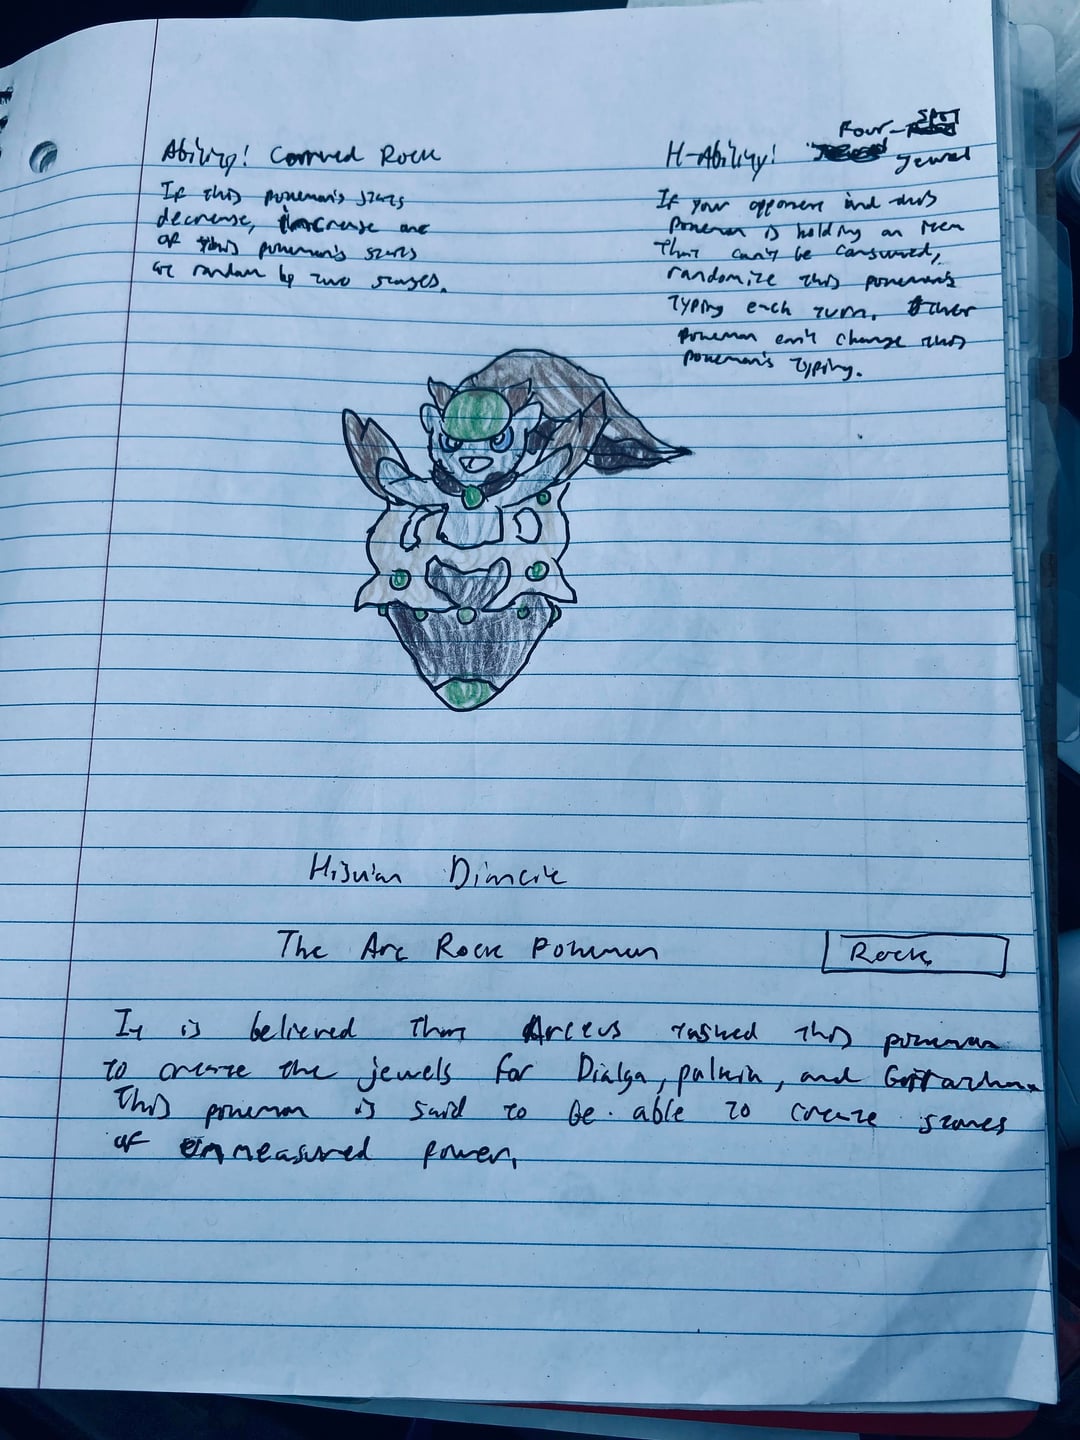 Ability: Carved Rock
If this pokemon's stats
decrease, increase one
of this pokemon's stats
at random by two stages.
Four-
H-Ability: Jewel
If your opponent and this
pokemon is holding an item
that can't be consumed,
randomize this pokemon's
typing each turn. Other
pokemon can't change this
pokemon's typing.
Hisuian Diancie
The Arc Rock Pokemon
Rock
It is believed that Arceus tasked this pokemon
to create the jewels for Dialga, palkia, and
This pokemon is said to be able to create stones
of unmeasured power.